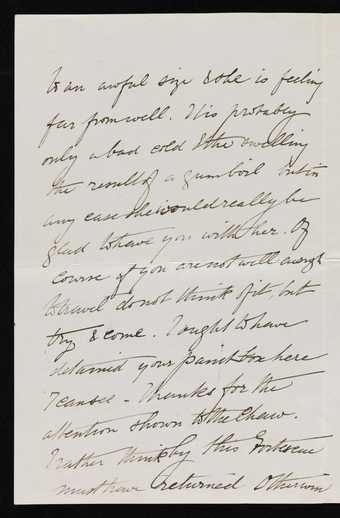 to an awful size & she is feeling
far from well. It is probably
only a bad cold & the swelling
the result of a gumboil but in
any case she would really be
glad to have you with her. Of
course if you are not well enough
to travel do not think of it, but
try & come. I ought to have
detained your paint box here
I can see – Thanks for the
attention shown to the Chaw.
I rather think by this Fortescue
must have returned Otherwise